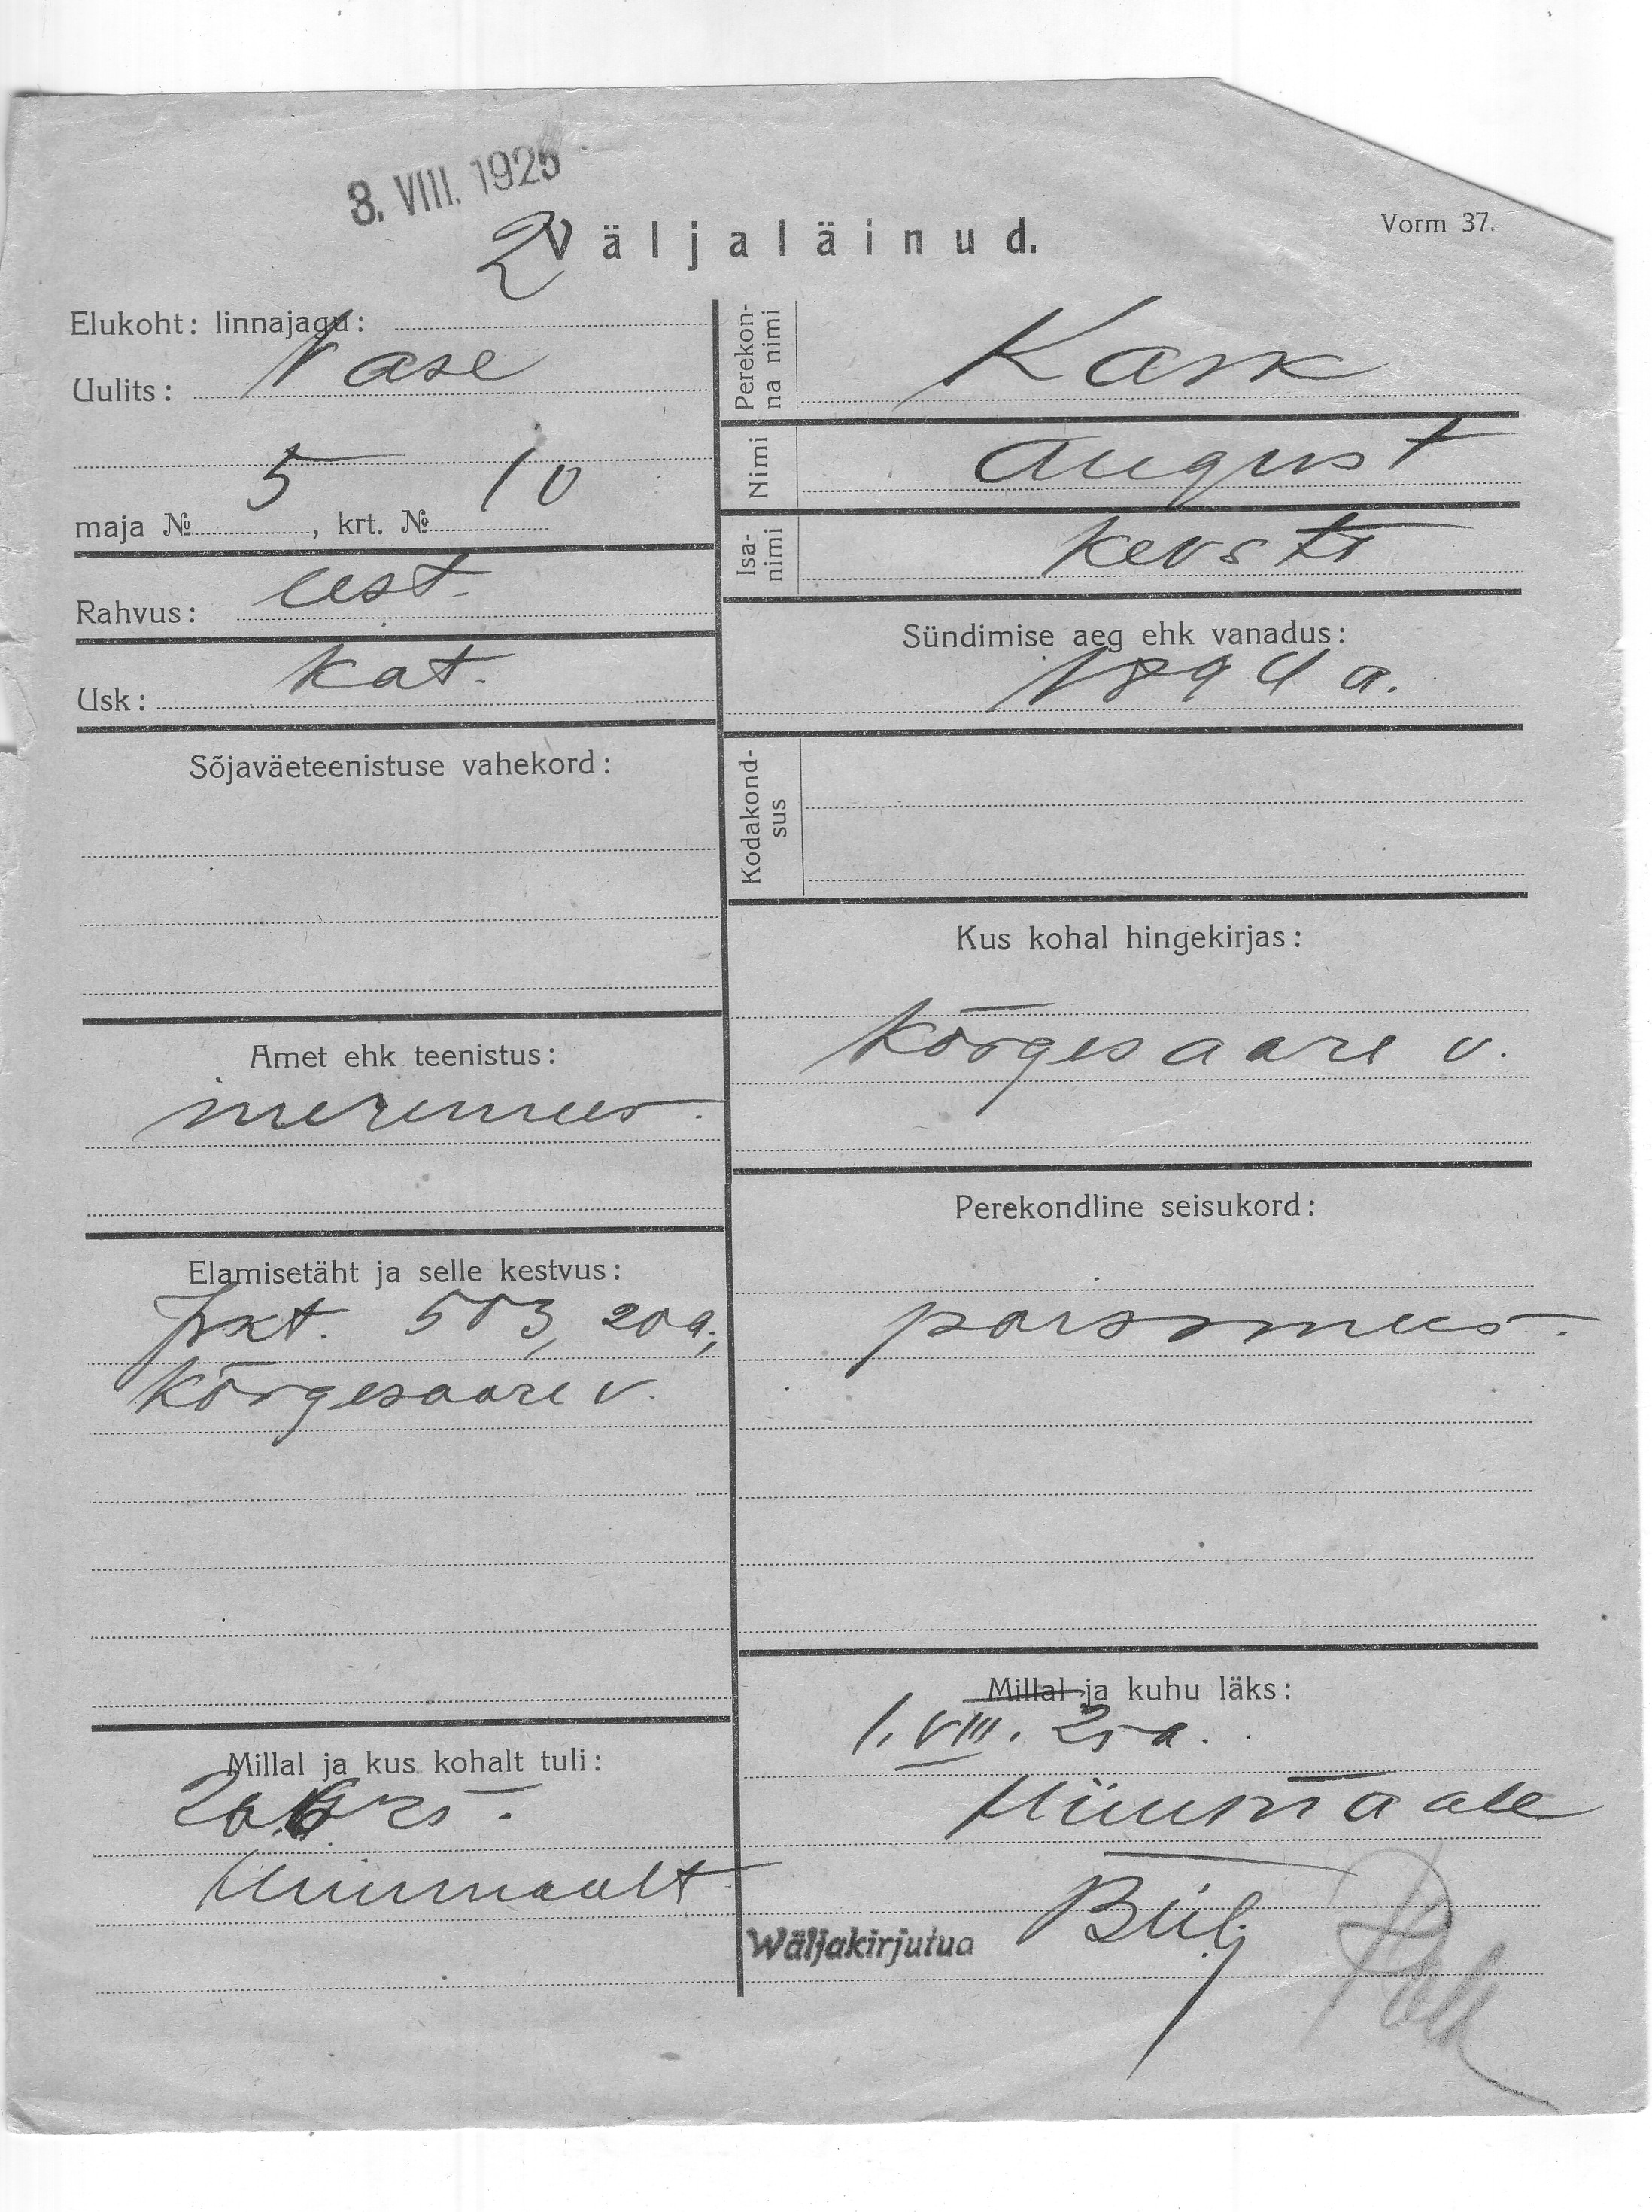 3. VIII. 1925
2
Väljaläinud.
Vorm 37.
Elukoht: linnajagu:
Uulits: Vase
maja № 5, krt. № 10
Rahvus: eest.
Usk: kat.
Sõjaväeteenistuse vahekord:
Amet ehk teenistus:
meremees.
Elamisetäht ja selle kestvus:
503, 20 a.,
Kõrgesaare v.
Millal ja kus kohalt tuli:
Hiiumaalt
Perekonna nimi
Kask
Nimi
August
Isanimi
Sündimise aeg ehk vanadus:
1894 a.
Kodakondsus
Kus kohal hingekirjas:
Kõrgesaare v.
Perekondline seisukord:
poissmees.
Millal ja kuhu läks:
1. VIII. 25 a.
Hiiumaale
Wäljakirjutua